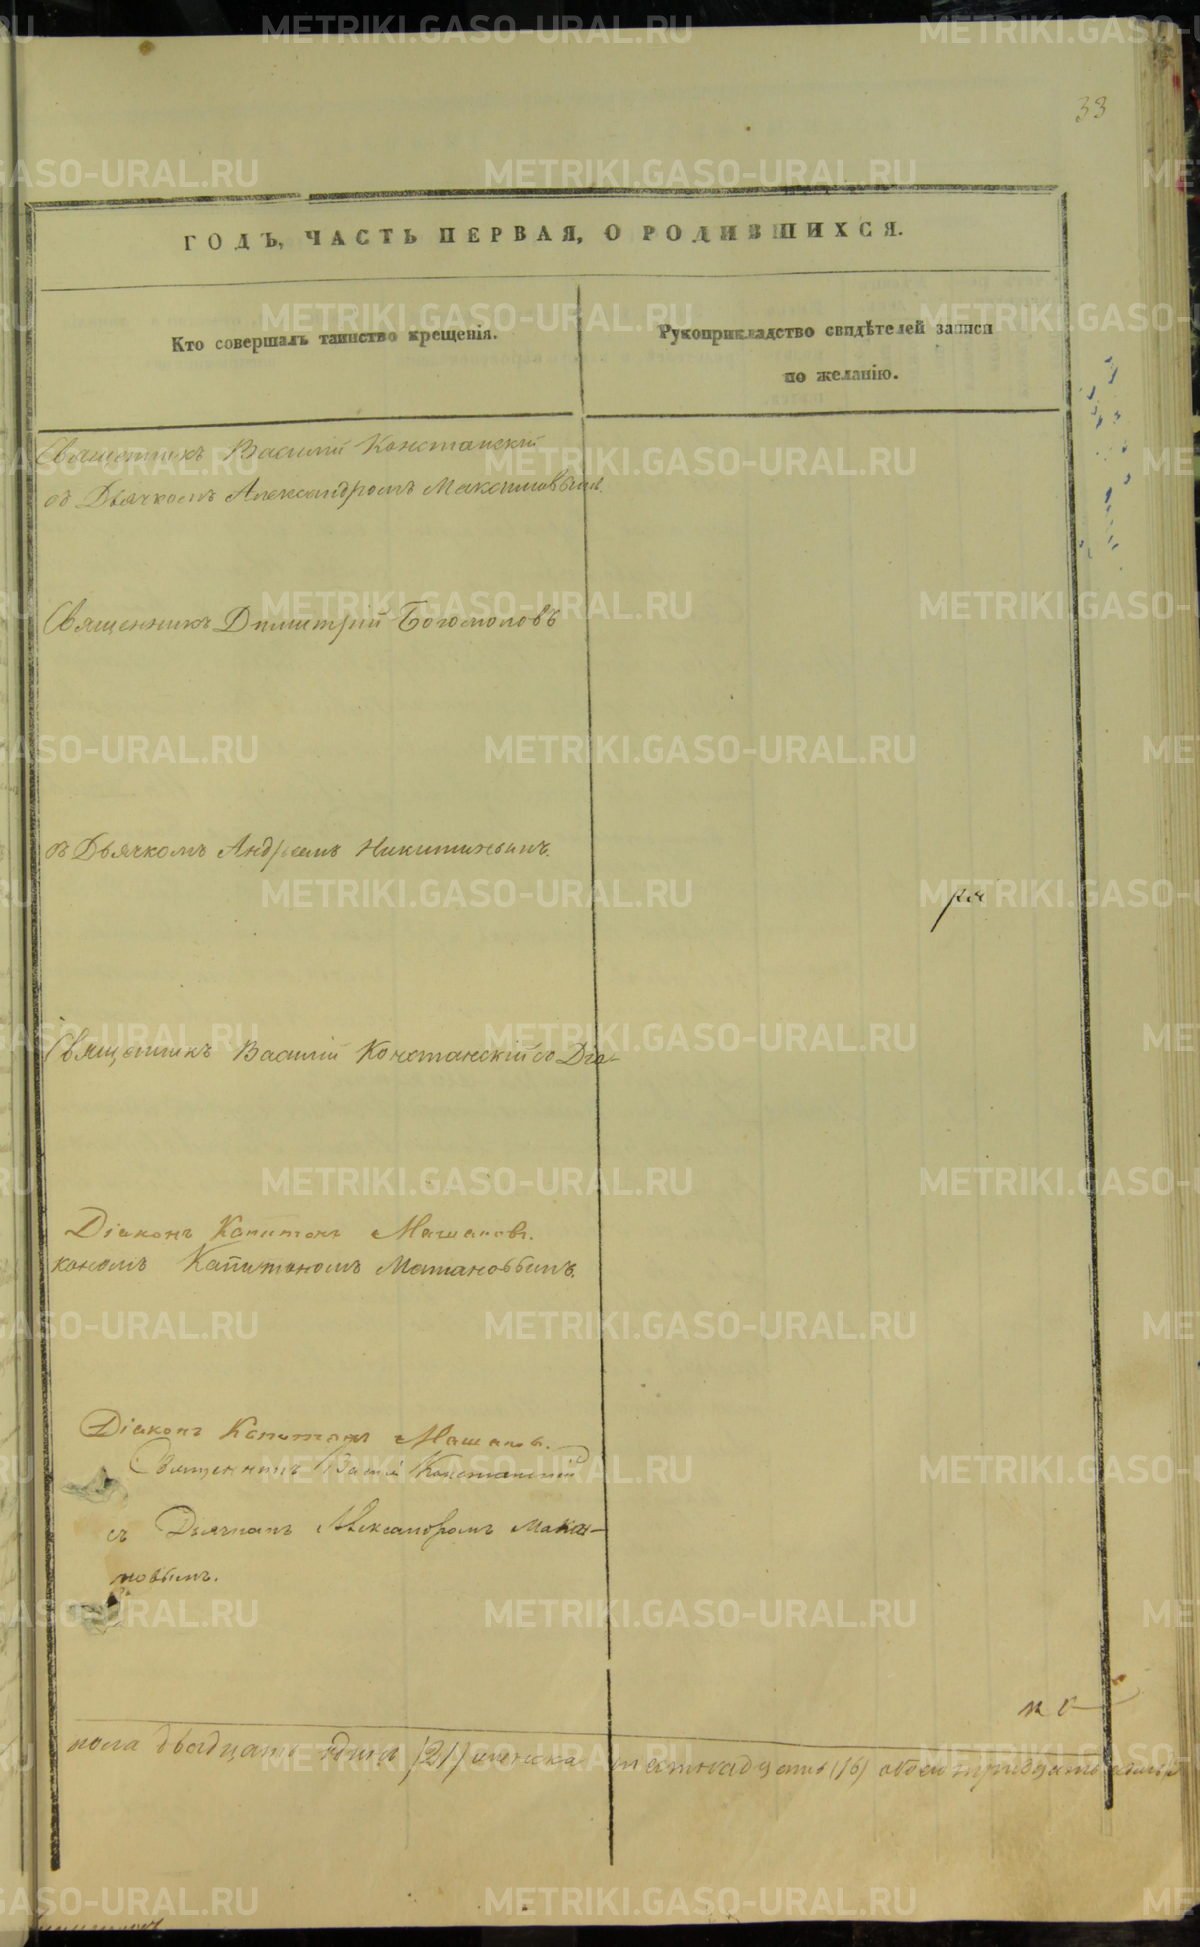 33
ГОДЪ, ЧАСТЬ ПЕРВАЯ, О РОДИВШИХСЯ.
Кто совершалъ таинство крещенія.
Рукоприкладство свидѣтелей записи
по желанію.
Священникъ Василій Констанскій
съ Дьячкомъ Александромъ Максимовымъ.
Священникъ Димитрій Богомоловъ
съ Дьячкомъ Андреемъ Никитинымъ.
Священникъ Василій Констанскій со Діа-
Діаконъ Капитонъ Машановъ.
кономъ Капитономъ Машановымъ.
Діаконъ Капитонъ Машановъ.
Священникъ Василій Констанскій
съ Дьячкомъ Александромъ
новымъ.
пола двадцать одинъ (21) женска шестнадцать (16) обоего тридцать
METRIKI.GASO-URAL.RU